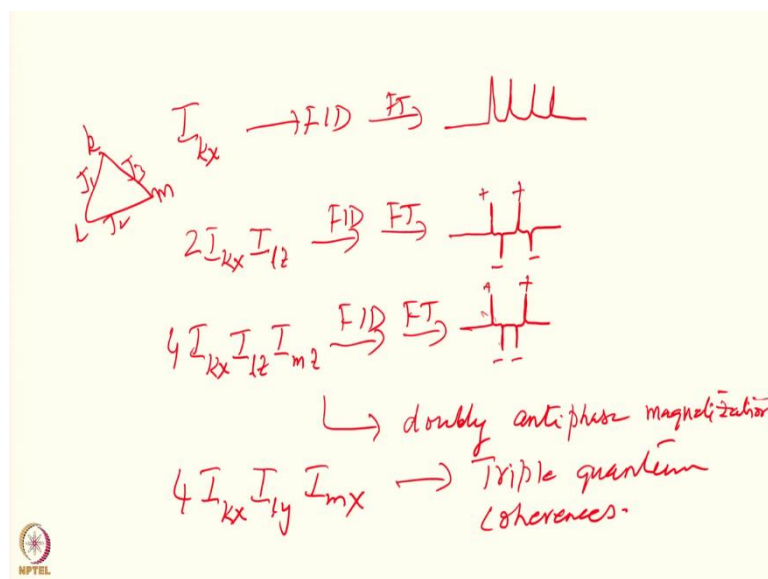 I_kx → FID FT→
k
J1 J3
L J2 m
2I_kx I_lz FID→ FT→ + +
- -
4I_kx I_lz I_mz FID→ FT→ +
- -
↳ doubly antiphase magnetization
4I_kx I_ly I_mx → Triple quantum
coherences.
NPTEL